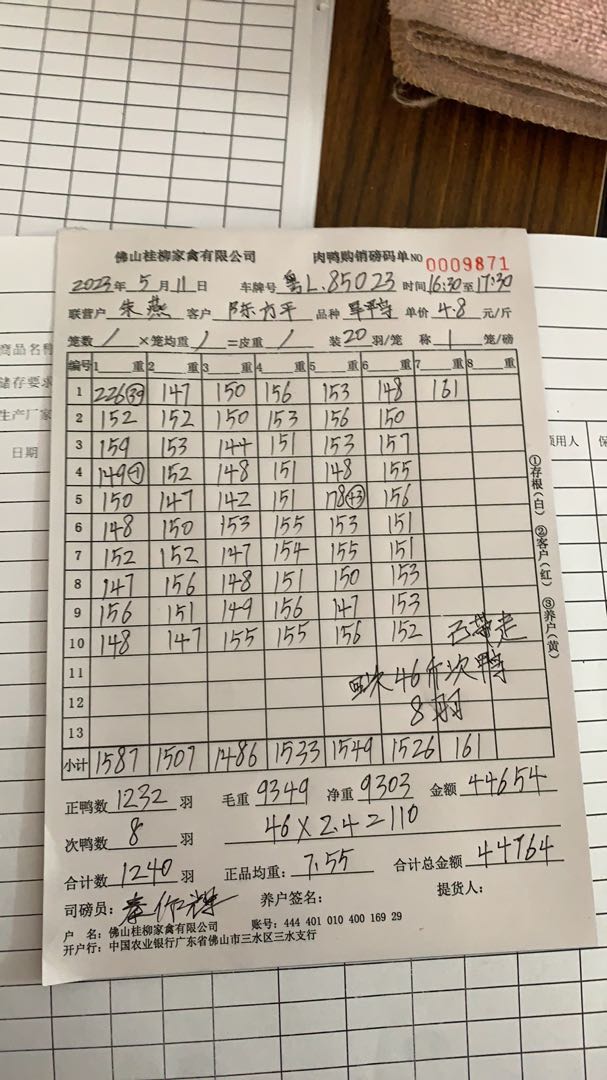 佛山桂柳家禽有限公司 肉鸭购销磅码单 NO 0009871
2023年 5月 11日 车牌号 粤L.85023 时间 16:30至17:30
联营户 朱燕 客户 陈方平 品种 单价 4.8 元/斤
笼数 / ×笼均重 / =皮重 / 装 20 羽/笼 称 1 笼/磅
编号 1 重 2 重 3 重 4 重 5 重 6 重 7 重 8 重
1 226㊴ 147 150 156 153 148 161
2 152 152 150 153 156 150
3 159 153 144 151 153 157
4 149 152 148 151 148 155
5 150 147 142 151 178 156
6 148 150 153 155 153 151
7 152 152 147 154 155 151
8 147 156 148 151 150 153
9 156 151 149 156 147 153
10 148 147 155 155 156 152
11
46斤次鸭
12
8羽
13
小计 1587 1507 1486 1533 1549 1526 161
正鸭数 1232 羽 毛重 9349 净重 9303 金额 44654
次鸭数 8 羽 46×2.4=110
合计数 1240 羽 正品均重: 7.55 合计总金额 44764
司磅员: 养户签名: 提货人:
户 名: 佛山桂柳家禽有限公司 账号: 444 401 010 400 169 29
开户行: 中国农业银行广东省佛山市三水区三水支行
①存根(白) ②客户(红) ③养户(黄)
商品名称
储存要求
生产厂家
日期
领用人
保